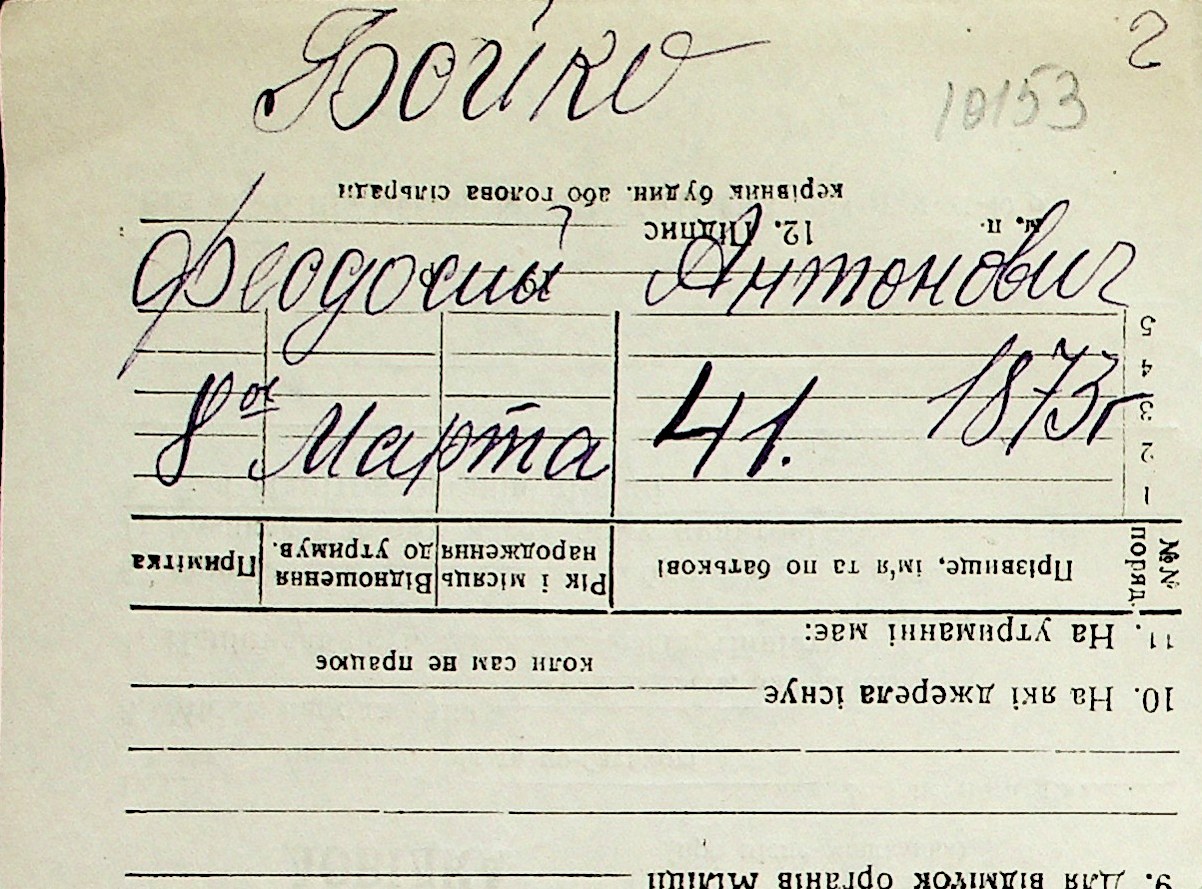 Бойко
2
10153
Феодосий Антонович
8ого Марта 41. 1873г
9. Для відміток органів міліції
10. На які джерела існує
коли сам не працює
11. На утриманні має:
№№ поряд.
Прізвище, ім'я та по батькові
Рік і місяць народження
Відношення до утримув.
Примітка
1
2
3
4
5
12. Підпис
м. п.
керівник будин. або голова сільради